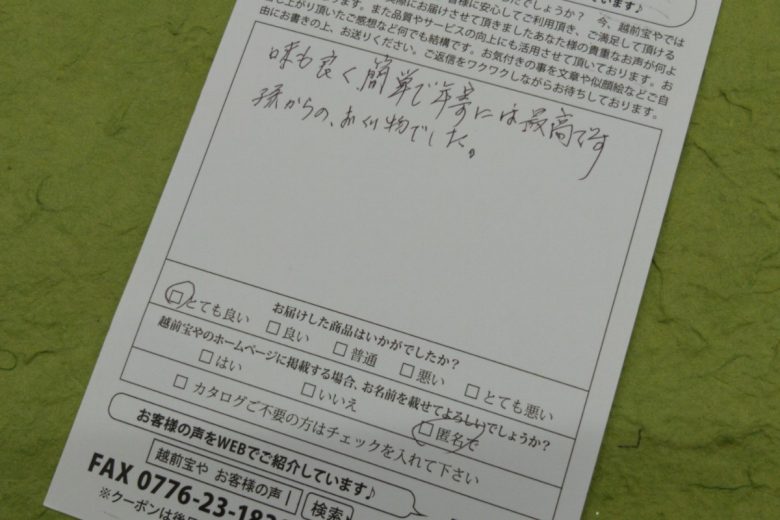 でしょうか? 今、越前宝やでは
皆様に安心してご利用頂き、ご満足して頂ける
実際にお届けさせて頂きましたあなた様の貴重なお声が何よ
し上がり頂いたご感想など何でも結構です。お気付きの事を文章や似顔絵などご自
由にお書きの上、お送りください。ご返信をワクワクしながらお待ちしております。
味も良く簡単で年寄には最高です
孫からの、おくり物でした。
お届けした商品はいかがでしたか?
□とても良い □良い □普通 □悪い □とても悪い
越前宝やのホームページに掲載する場合、お名前を載せてよろしいでしょうか?
□はい □いいえ □匿名で
□カタログご不要の方はチェックを入れて下さい
お客様の声をWEBでご紹介しています♪
越前宝や お客様の声 検索
FAX 0776-23-183
※クーポンは後